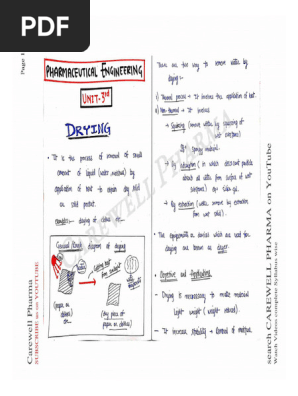 PDF
Page 1
PHARMACEUTICAL ENGINEERING
UNIT-3rd
DRYING
It is the process of removal of small
amount of liquid (water material) by
application of heat to obtain dry solid
as solid product.
example:- drying of clothes etc.
General/Basic diagram of drying
There are two way to remove water by
drying:-
Thermal process → It involves the application of heat.
Non-thermal → It involves
→ Squeezing (remove water by squeezing of
wet
sponge material.
→ By adsorption (in which desiccant particle
absorb all water from surface of wet
silica gel.
→ By extraction (remove water by extraction
from wet solid).
The equipments or devices which are used for
drying are known as dryer.
Objective and Applications
Drying is necessary to make material
light weight (weight reduce).
It increase stability → Control of moisture
CAREWELL PHARMA
Carewell Pharma
SUBSCRIBE us on YOUTUBE
search CAREWELL PHARMA on YouTube
Watch Videos complete Syllabus wise